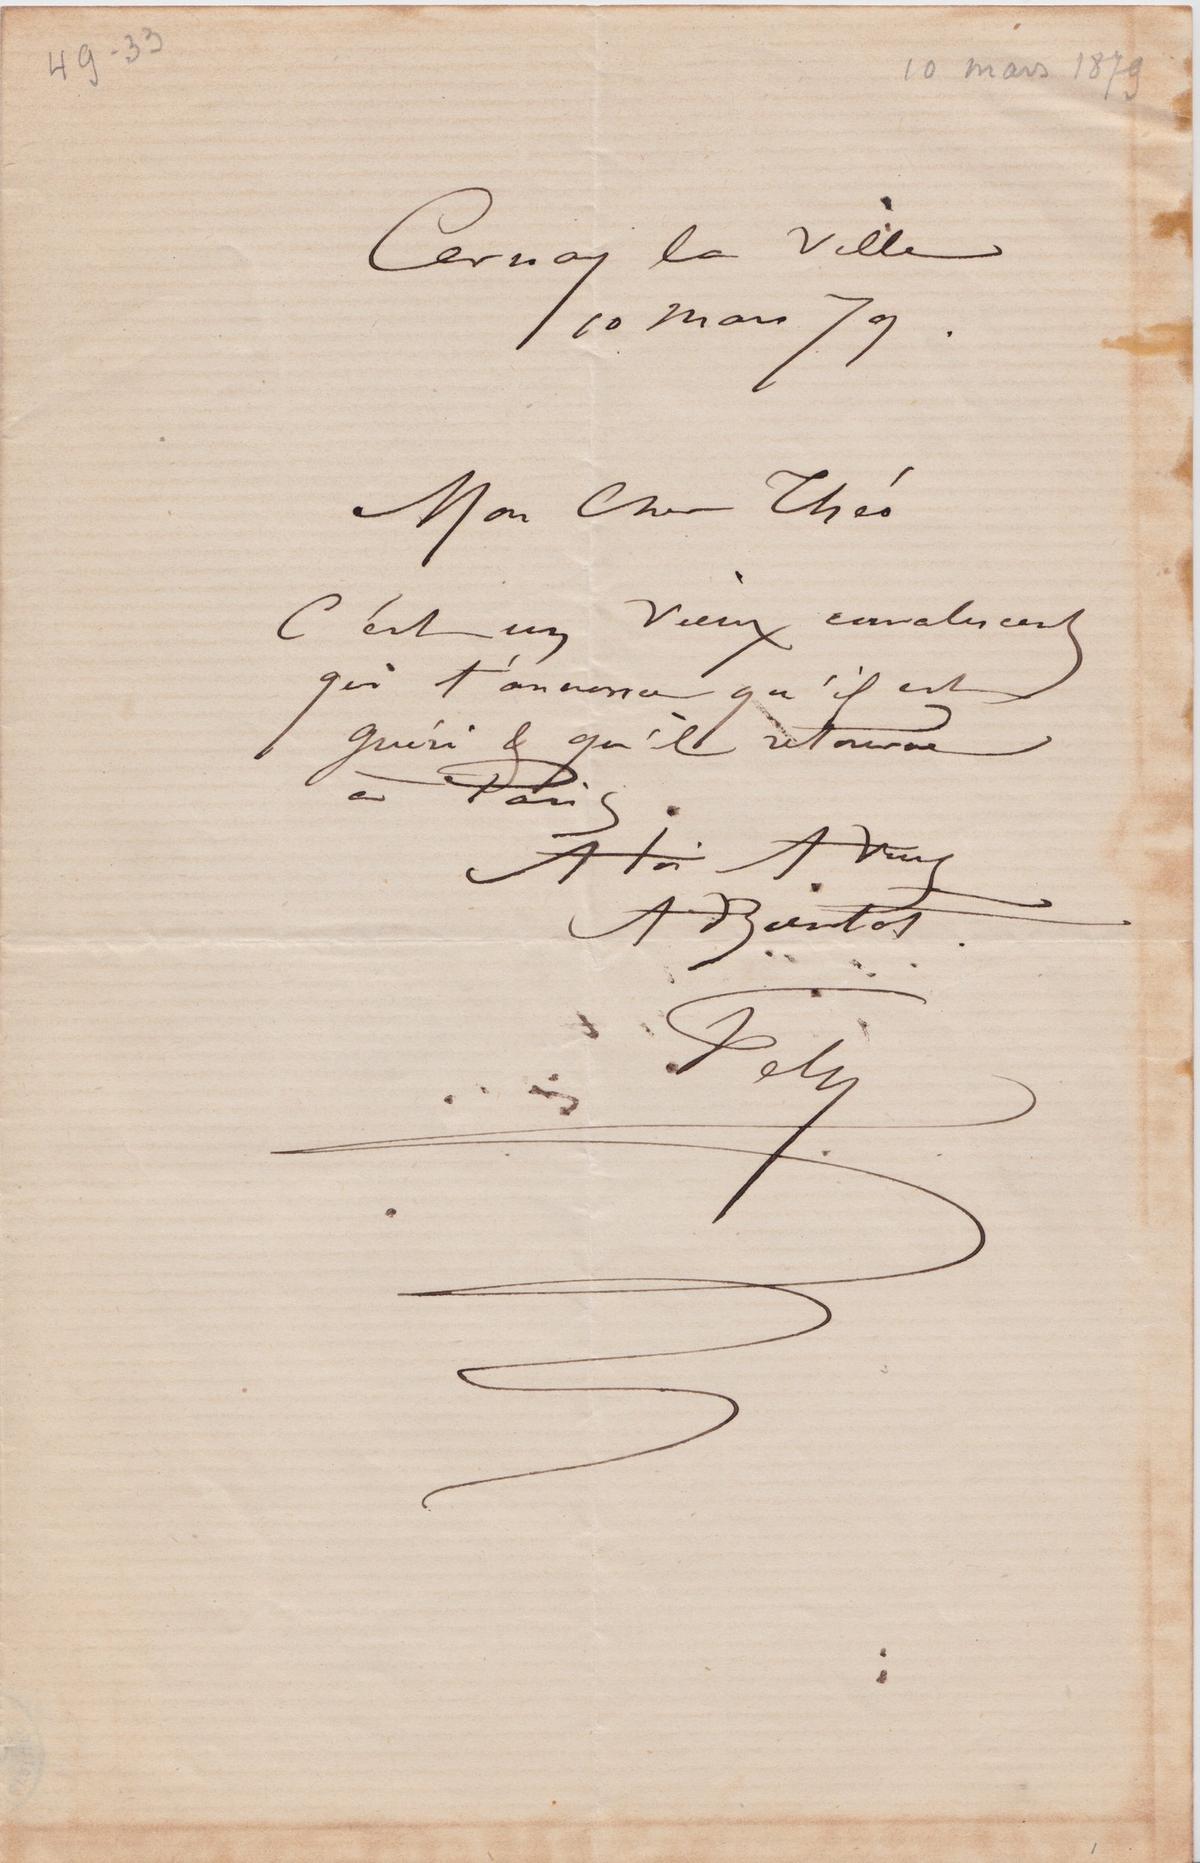 49-33
10 mars 1879
Cernay la Ville
10 mars 79.
Mon Cher Théo
C'est un vieux convalescent
qui t'annonce qu'il est
guéri & qu'il retourne
à Paris.
A toi A Vous
A Bientot.
Pely